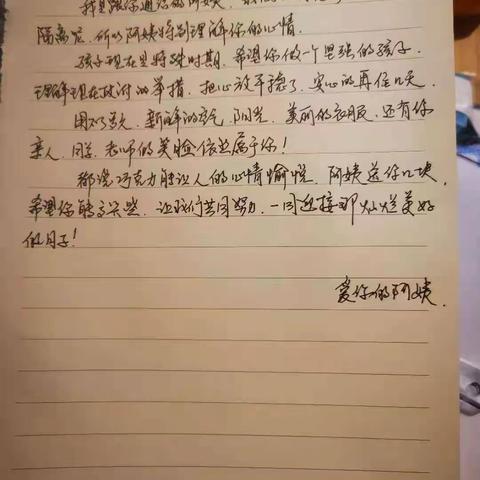 我是跟你通话的阿姨
隔离光，所以阿姨特别理解你的心情。
孩子现在是特殊时期，希望你做一个坚强的孩子，
理解现在政府的举措，把心放平稳了，安心的再住几天，
用不了多久，新鲜的空气，阳光，美丽的衣服，还有你
亲人、同学、老师的美脸依然属于你！
都说巧克力能让人的心情愉悦，阿姨送你几块，
希望你能高兴些，让我们共同努力，一同迎接那灿烂美好
的日子！
爱你的阿姨.